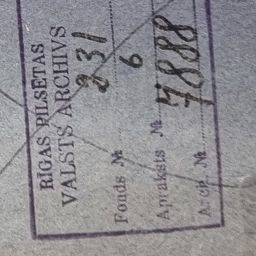 RĪGAS PILSĒTAS
VALSTS ARCHIVS
Fonds № 231
Apraksts № 6
Arch. № 7888